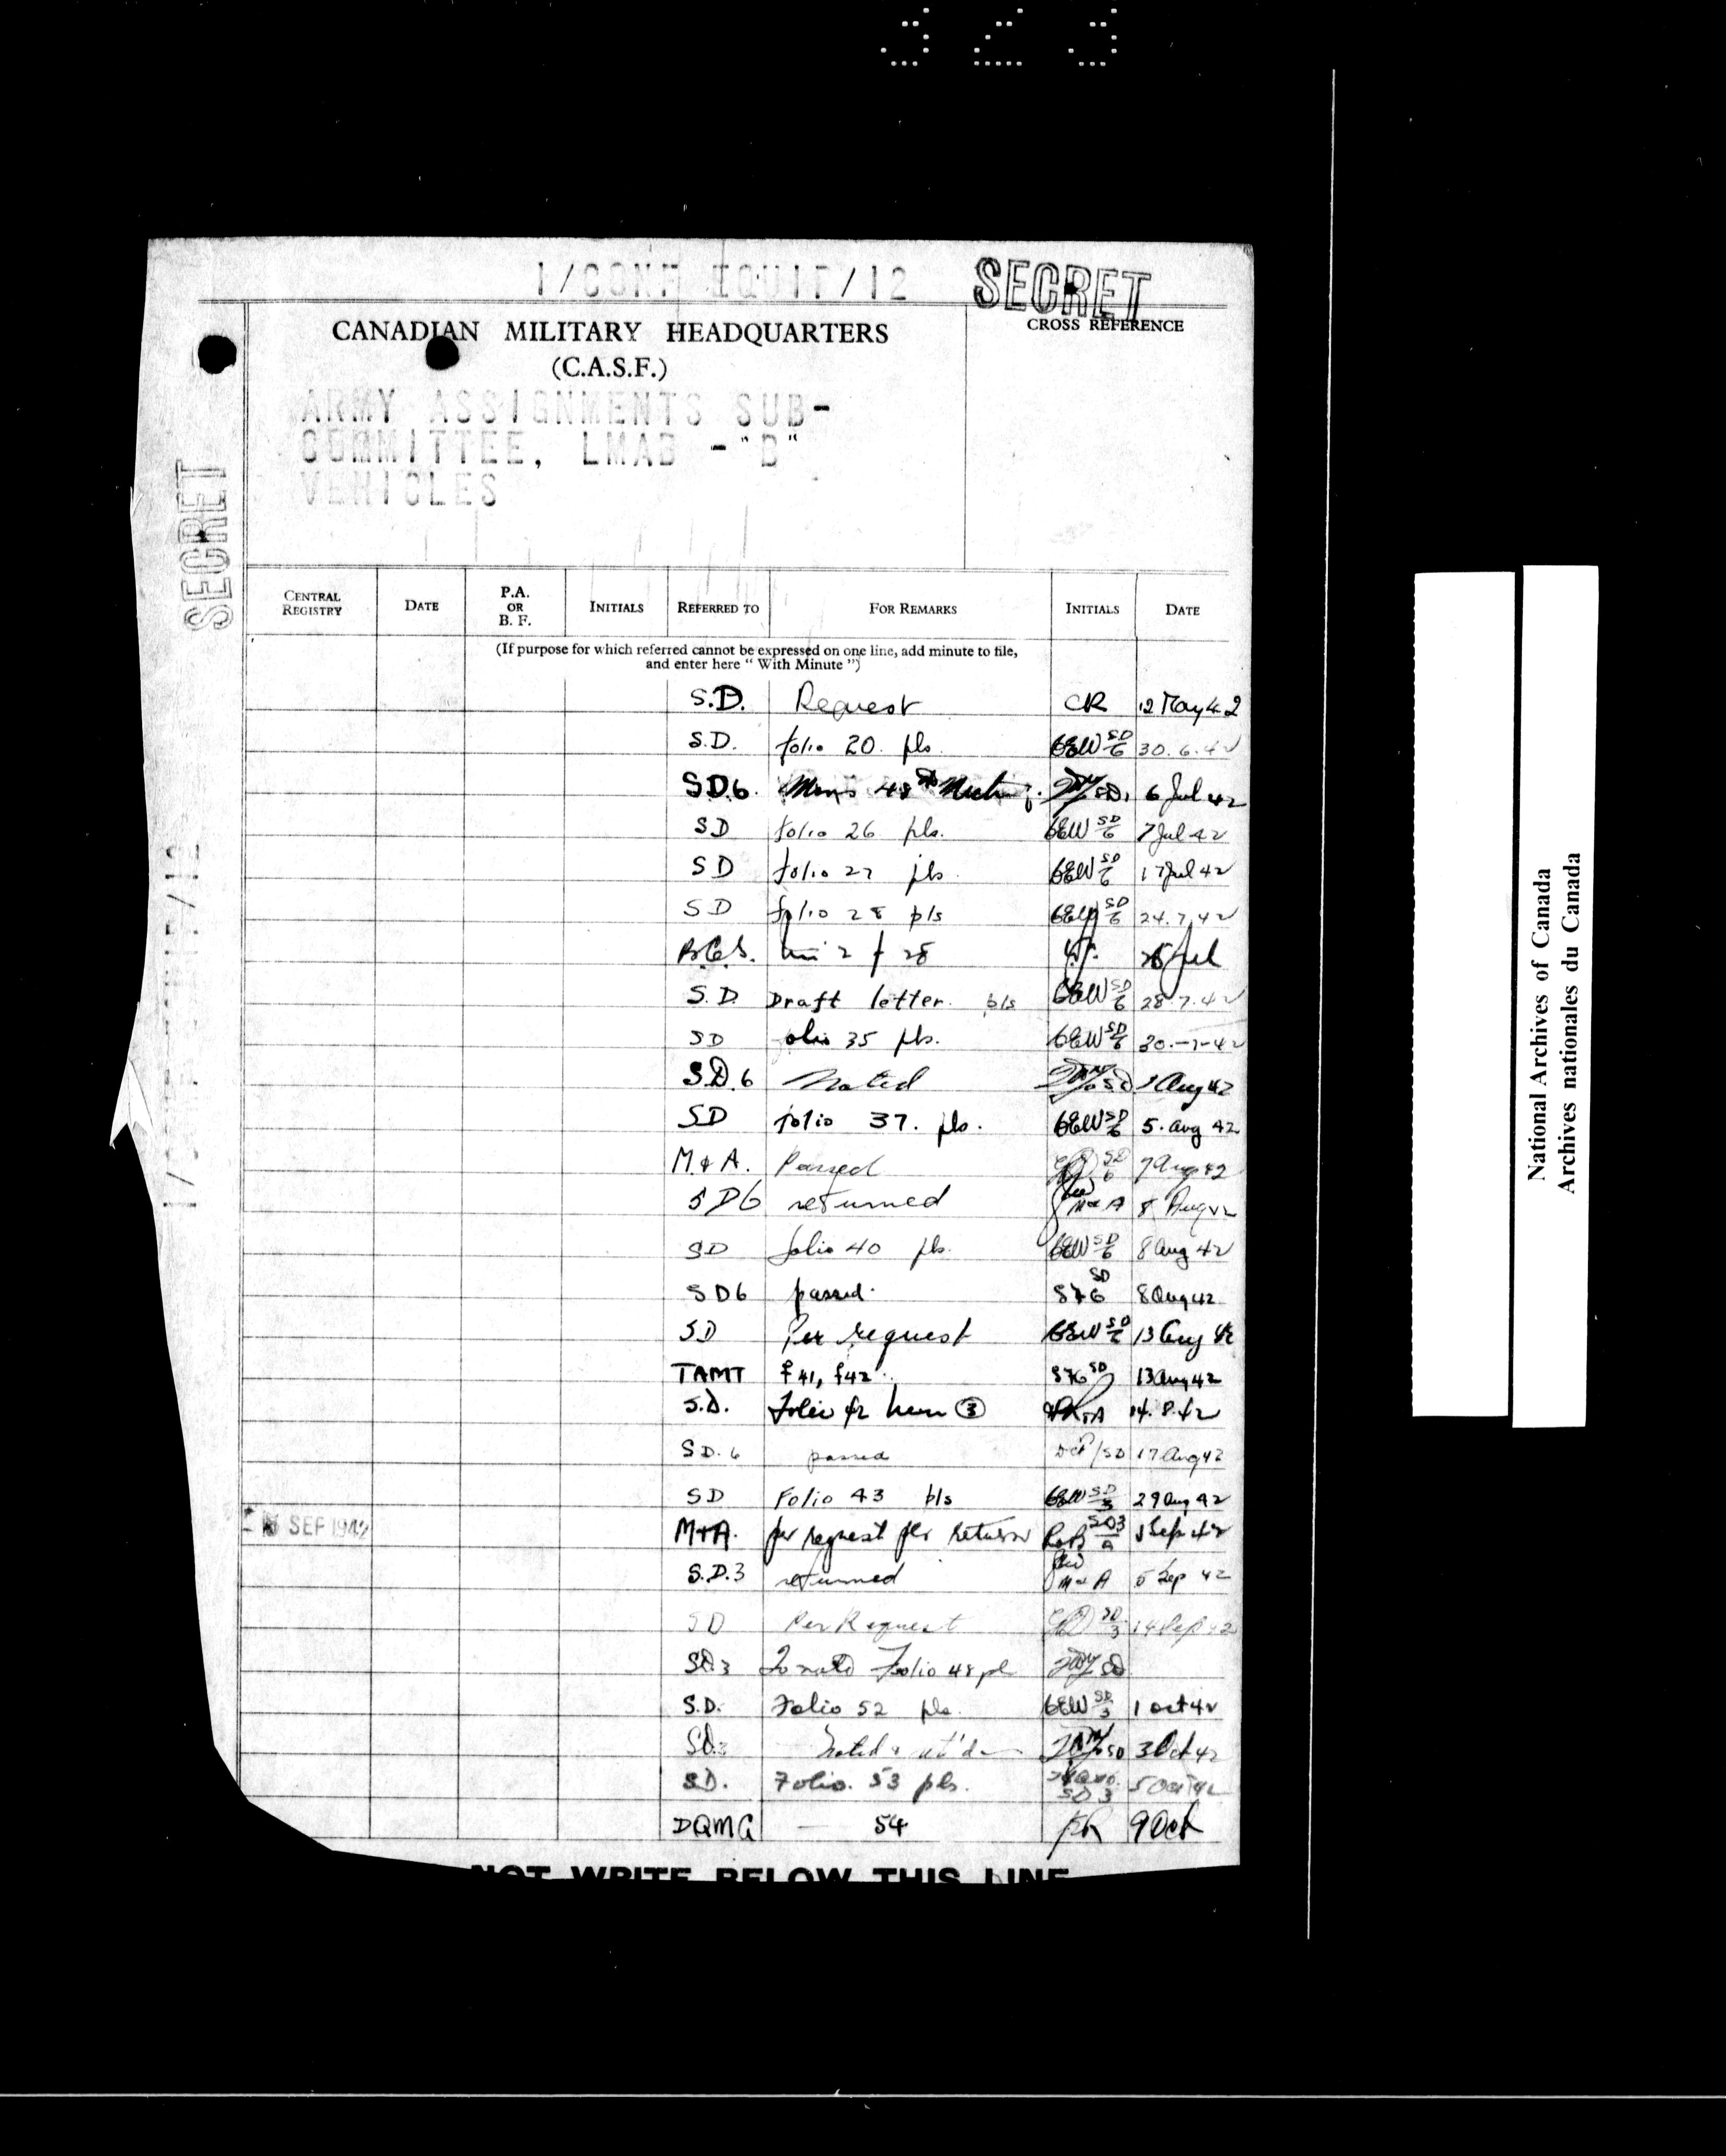 323
1/CONF EQUIP/12
SECRET
CANADIAN MILITARY HEADQUARTERS
(C.A.S.F.)
CROSS REFERENCE
ARMY ASSIGNMENTS SUB-
COMMITTEE, LMAB - "B"
VEHICLES
SECRET
CENTRAL REGISTRY DATE P.A. OR B. F. INITIALS REFERRED TO FOR REMARKS INITIALS DATE
(If purpose for which referred cannot be expressed on one line, add minute to file,
and enter here " With Minute ")
S.D. Request CR 12 May 42
S.D. folio 20. pls. GEW SD/6 30.6.42
SD6. 48th SD. 6 Jul 42
SD folio 26 pls. GEW SD/6 7 Jul 42
SD folio 27 pls GEW SD/6 17 Jul 42
SD folio 28 pls GEW SD/6 24.7.42
2 f 28 Jul
S.D. Draft letter. pls GEW SD/6 28.7.42
SD folio 35 pls. GEW SD/6 30-7-42
S.D.6 Noted SD Aug 42
SD folio 37. pls. GEW SD/6 5. Aug 42
M & A. Passed SD/6 7 Aug 42
SD6 returned M & A 8 Aug 42
SD folio 40 pls. GEW SD/6 8 Aug 42
SD6 passed. SD 8 Aug 42
SD Per request GEW SD/6 13 Aug 42
TAMT f 41, f 42 SD 13 Aug 42
S.D. Folio 14.8.42
SD.6 passed /SD 17 Aug 42
SD Folio 43 pls GEW SD/3 29 Aug 42
SEP 1942 M+A. per request pls return SD3 Sep 42
S.D.3 returned M & A 5 Sep 42
SD Per Request SD/3 14 Sep 42
SD3 To note Folio 48 pl SD
S.D. Folio 52 pls. GEW SD/3 1 Oct 42
SD3 Noted & SD 3 Oct 42
S.D. Folio. 53 pls. SD 3 5 Oct 42
DQMG — 54 9 Oct
NOT WRITE BELOW THIS LINE
National Archives of Canada
Archives nationales du Canada